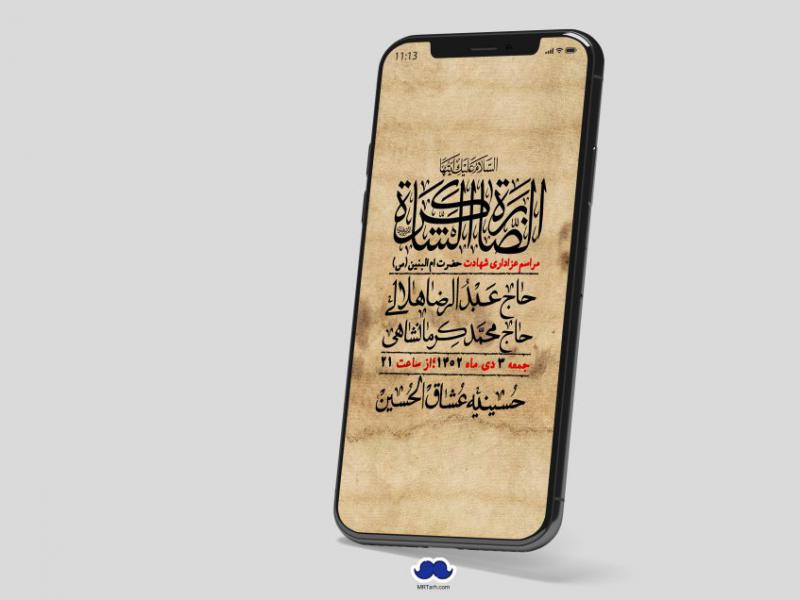 11:13
السلام علیك ایتها
الصابرة الشاکرة
مراسم عزاداری شهادت حضرت ام البنین (س)
حاج عبدالرضا هلالی
حاج محمد کرمانشاهی
جمعه ۳ دی ماه ۱۴۰۲؛ از ساعت ۲۱
حسینیه عشاق الحسین
MRTarh.com